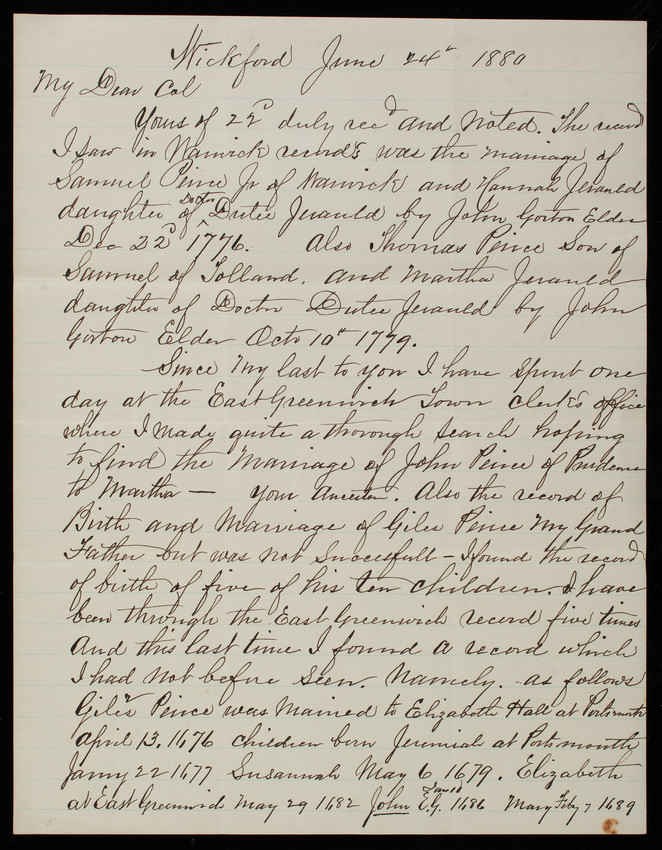 Wickford June 24th 1880
My Dear Col
Yours of 22d duly recd and noted. The record
I saw in Warwick records was the marriage of
Samuel Peirce Jr of Warwick and Hannah Jerauld
daughter of Doctor Dutee Jerauld by John Gorton Elder
Dec 22d 1776. Also Thomas Peirce Son of
Samuel of Tolland. and Martha Jerauld
daughter of Doctor Dutee Jerauld by John
Gorton Elder Octo 10th 1779.
Since my last to you I have spent one
day at the East Greenwich Town Clerks office
where I made quite a thorough search hoping
to find the marriage of John Peirce of Prudence
to Martha — your Ancestor. Also the record of
Birth and Marriage of Giles Peirce my Grand
Father but was not Successfull – I found the record
of birth of five of his ten children. I have
been through the East Greenwich record five times
and this last time I found a record which
I had not before seen. Namely. as follows
Giles Peirce was Married to Elizabeth Hall at Portsmouth
April 13, 1676 children born Jeremiah at Portsmouth
Janry 22 1677 Susannah May 6 1679. Elizabeth
at East Greenwich May 29 1682 John E.G. 1686 Mary Feby 7 1689